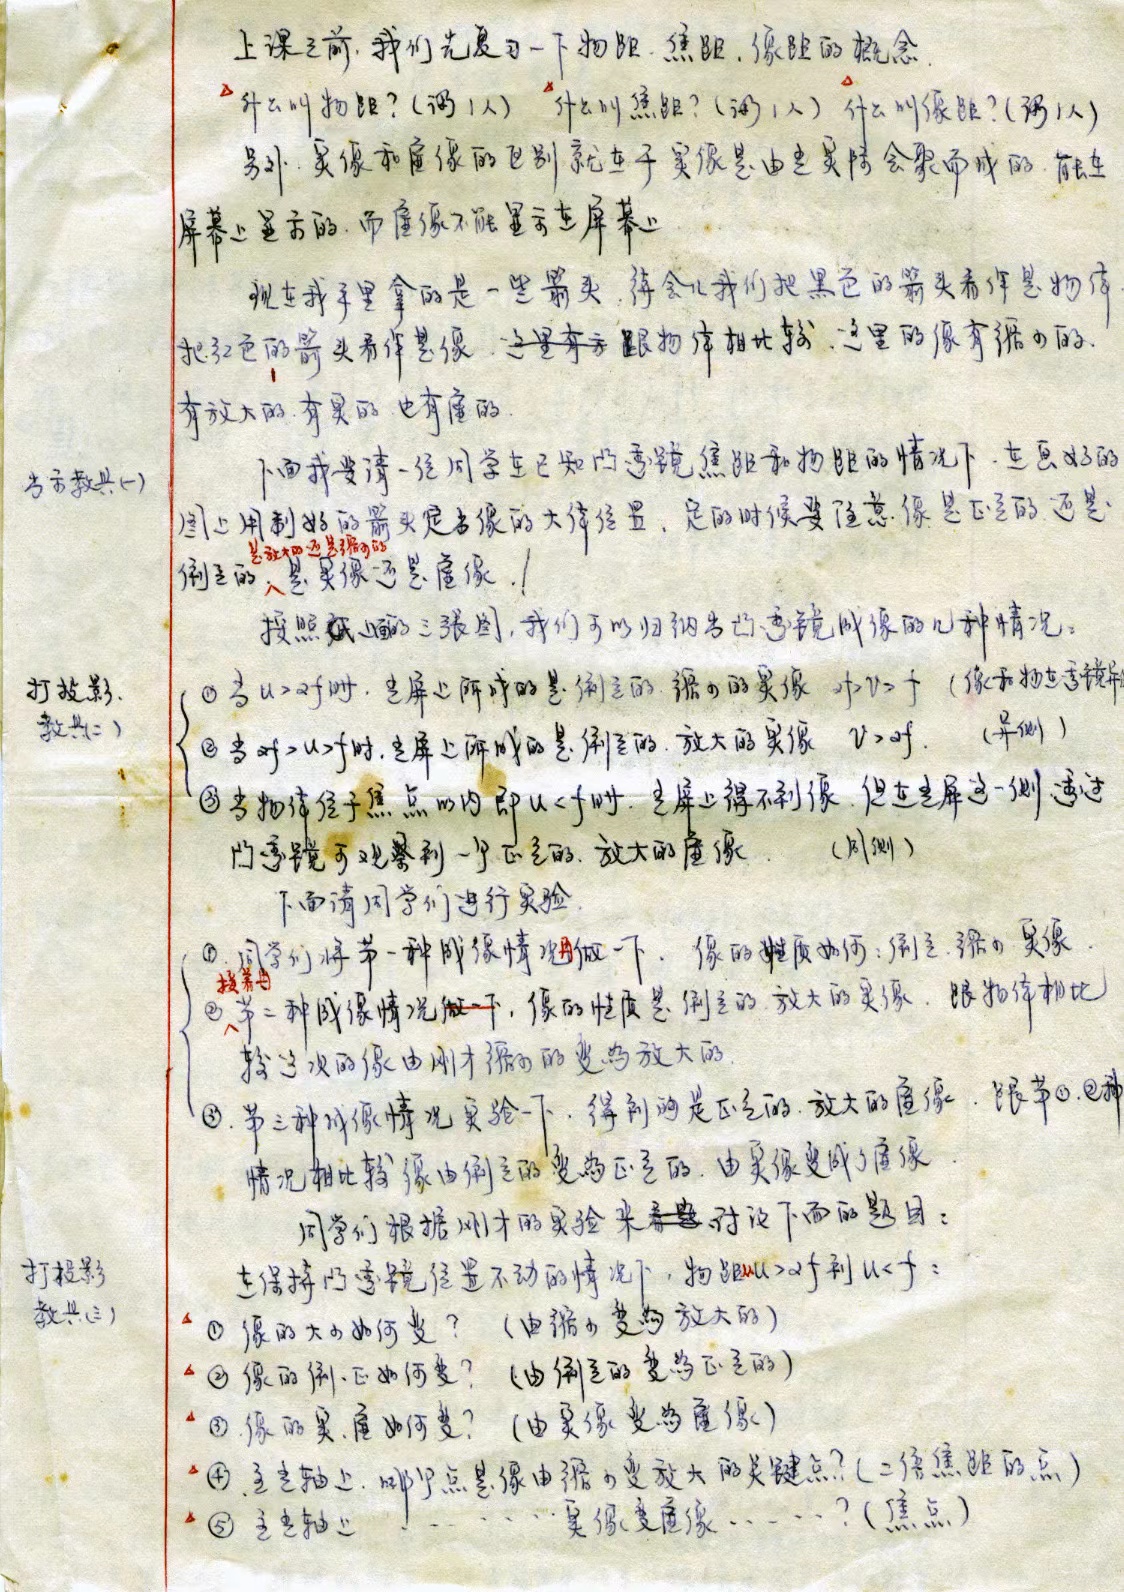 上课之前，我们先复习一下物距、焦距、像距的概念.
△什么叫物距？（1人） △什么叫焦距？（1人） △什么叫像距？（1人）
另外，实像和虚像的区别就在于实像是由光实际会聚而成的，能在
屏幕上显示的，而虚像不能显示在屏幕上
现在我手里拿的是一些箭头，待会儿我们把黑色的箭头看作是物体
把红色的箭头看作是像，这里有示跟物体相比较，这里的像有缩小的、
有放大的、有实的，也有虚的.
出示教具(一)
下面我要请一位同学在已知凸透镜焦距和物距的情况下，在画好的
图上用制好的箭头定出像的大体位置，定的时候要注意像是正立的还是
是放大的还是缩小的
倒立的，是实像还是虚像.!
按照上面的三张图，我们可以归纳出凸透镜成像的几种情况：
打投影.
教具(二)
① 当u>2f时，光屏上所成的是倒立的、缩小的实像 2f>v>f （像和物在透镜异侧
② 当2f>u>f时，光屏上所成的是倒立的、放大的实像 v>2f. （异侧）
③ 当物体位于焦点以内即u<f时，光屏上得不到像，但在光屏这一侧透过
凸透镜可观察到一个正立的、放大的虚像. （同侧）
下面请同学们进行实验.
①. 同学们将第一种成像情况再做一下， 像的性质如何：倒立、缩小、实像.
接着再
② 第二种成像情况做一下，像的性质是倒立的、放大的实像，跟物体相比
较这次的像由刚才缩小的变为放大的.
③. 第三种成像情况实验一下，得到的是正立的、放大的虚像，跟第①、②种
情况相比较像由倒立的变为正立的，由实像变成了虚像.
同学们根据刚才的实验来看题讨论下面的题目：
打投影
教具(三)
在保持凸透镜位置不动的情况下，物距u>2f到u<f：
△ ① 像的大小如何变？ （由缩小变为放大的）
△ ② 像的倒、正如何变？ （由倒立的变为正立的）
△ ③ 像的实、虚如何变？ （由实像变为虚像）
△ ④ 主光轴上，哪个点是像由缩小变放大的关键点？（二倍焦距的点）
△ ⑤ 主光轴上 ········ 实像变虚像 ······？（焦点）